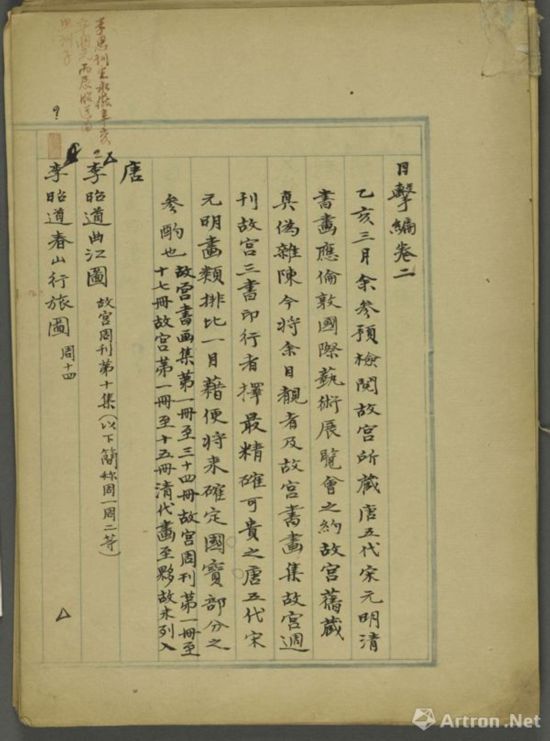 目擊編卷二
乙亥三月余參預檢閱故宮所藏唐五代宋元明清
書畫應倫敦國際藝術展覽會之約故宮舊藏
真偽雜陳今將余目覩者及故宮書畫集故宮週
刊故宮三書印行者擇最精確可貴之唐五代宋
元明畫類排比一目藉便將來確定國寶部分之
參酌也 故宮書画集第一冊至三十四冊故宮周刊第一冊至
十七冊故宮第一冊至十五冊清代畫至夥故未列入
唐
李昭道曲江圖 故宮周刊第十集(以下簡称周一周二等)
李昭道春山行旅圖 周十四
Artron.Net